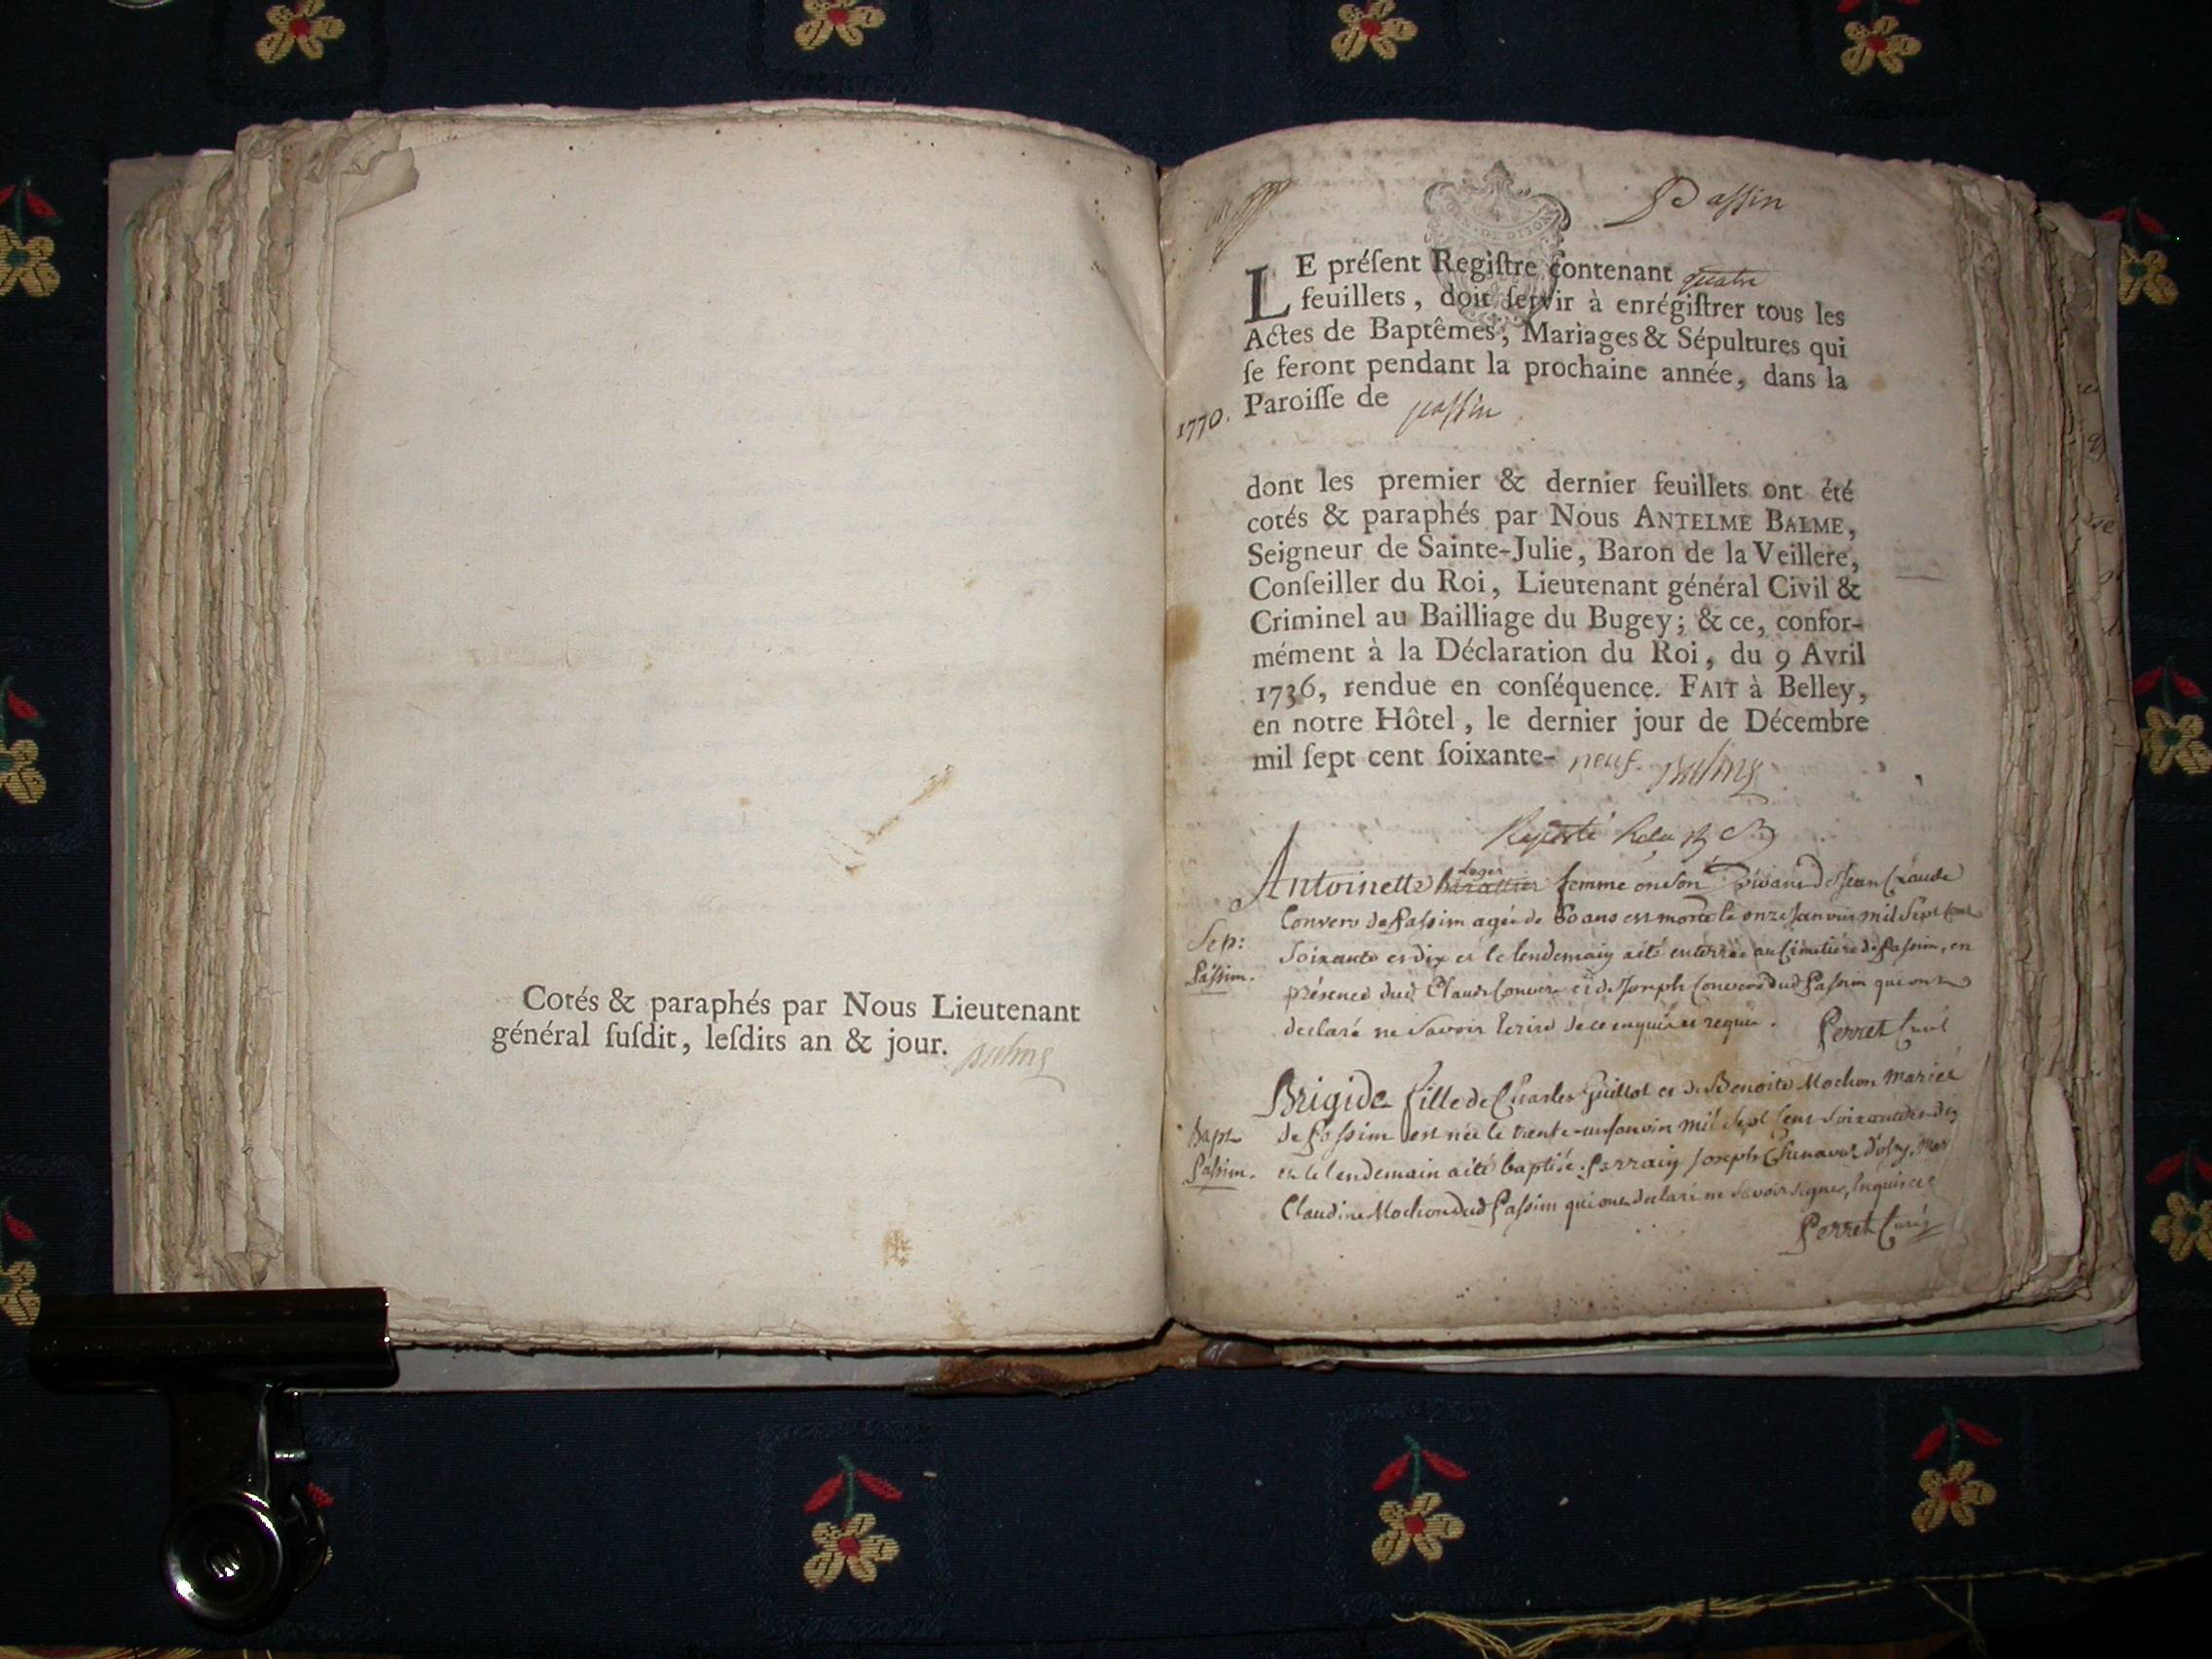 Cotés & paraphés par Nous Lieutenant
général ſuſdit, leſdits an & jour. Balme
Passin
LE préſent Regiſtre contenant quatre
feuillets, doit ſervir à enrégiſtrer tous les
Actes de Baptêmes, Mariages & Sépultures qui
ſe feront pendant la prochaine année, dans la
1770. Paroiſſe de passin
dont les premier & dernier feuillets ont été
cotés & paraphés par Nous ANTELME BALME,
Seigneur de Sainte-Julie, Baron de la Veillere,
Conſeiller du Roi, Lieutenant général Civil &
Criminel au Bailliage du Bugey; & ce, confor-
mément à la Déclaration du Roi, du 9 Avril
1736, rendue en conſéquence. FAIT à Belley,
en notre Hôtel, le dernier jour de Décembre
mil ſept cent ſoixante- neuf. Balme
Antoinette femme en son vivant de Jean Claude
Convers de Passim agée de 60 ans est morte le onze Janvier mil Sept Cent
Sep:
Soixante et dix et le lendemain a été enterrée au Cimetière de Passim, en
Passim.
présence dud Claude Convers et de Joseph Convers dud Passim qui ont
declaré ne savoir Ecrire de ce enquis et requis. Perret Curé
Brigide fille de Charles Guillot et de Benoite Mochon mariés
Bapt
de Passim est née le trente un Janvier mil Sept Cent Soixante et dix
Passim.
et le lendemain a été baptisée. Parrain Joseph
Claudine Mochon dud Passim qui ont declaré ne savoir signer, Enquis
Perret Curé